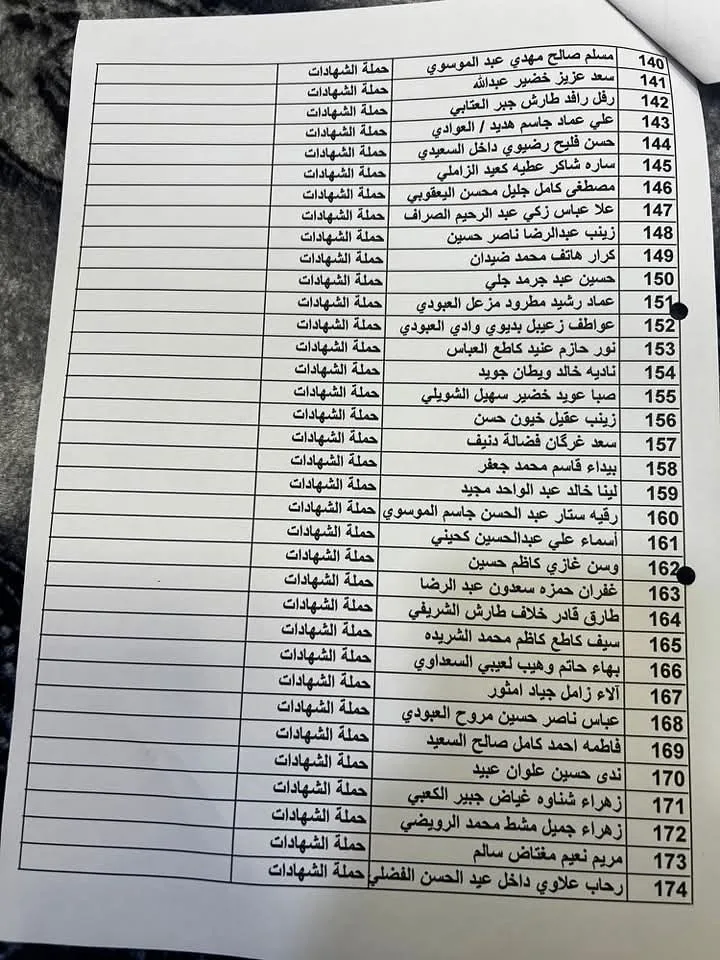 140 مسلم صالح مهدي عبد الموسوي حملة الشهادات
141 سعد عزيز خضير عبدالله حملة الشهادات
142 رفل رافد طارش جبر العتابي حملة الشهادات
143 علي عماد جاسم هديد / العوادي حملة الشهادات
144 حسن فليح رضيوي داخل السعيدي حملة الشهادات
145 ساره شاكر عطيه كعيد الزاملي حملة الشهادات
146 مصطفى كامل جليل محسن اليعقوبي حملة الشهادات
147 علا عباس زكي عبد الرحيم الصراف حملة الشهادات
148 زينب عبدالرضا ناصر حسين حملة الشهادات
149 كرار هاتف محمد ضيدان حملة الشهادات
150 حسين عبد جرمد جلي حملة الشهادات
151 عماد رشيد مطرود مزعل العبودي حملة الشهادات
152 عواطف زعيبل بديوي وادي العبودي حملة الشهادات
153 نور حازم عنيد كاطع العباس حملة الشهادات
154 ناديه خالد ويطان جويد حملة الشهادات
155 صبا عويد خضير سهيل الشويلي حملة الشهادات
156 زينب عقيل خيون حسن حملة الشهادات
157 سعد غرگان فضالة دنيف حملة الشهادات
158 بيداء قاسم محمد جعفر حملة الشهادات
159 لينا خالد عبد الواحد مجيد حملة الشهادات
160 رقيه ستار عبد الحسن جاسم الموسوي حملة الشهادات
161 أسماء علي عبدالحسين كحيني حملة الشهادات
162 وسن غازي كاظم حسين حملة الشهادات
163 غفران حمزه سعدون عبد الرضا حملة الشهادات
164 طارق قادر خلاف طارش الشريفي حملة الشهادات
165 سيف كاطع كاظم محمد الشريده حملة الشهادات
166 بهاء حاتم وهيب لعيبي السعداوي حملة الشهادات
167 آلاء زامل جياد امثور حملة الشهادات
168 عباس ناصر حسين مروح العبودي حملة الشهادات
169 فاطمه احمد كامل صالح السعيد حملة الشهادات
170 ندى حسين علوان عبيد حملة الشهادات
171 زهراء شناوه غياض جبير الكعبي حملة الشهادات
172 زهراء جميل مشط محمد الرويضي حملة الشهادات
173 مريم نعيم مغتاض سالم حملة الشهادات
174 رحاب علاوي داخل عبد الحسن الفضلي حملة الشهادات